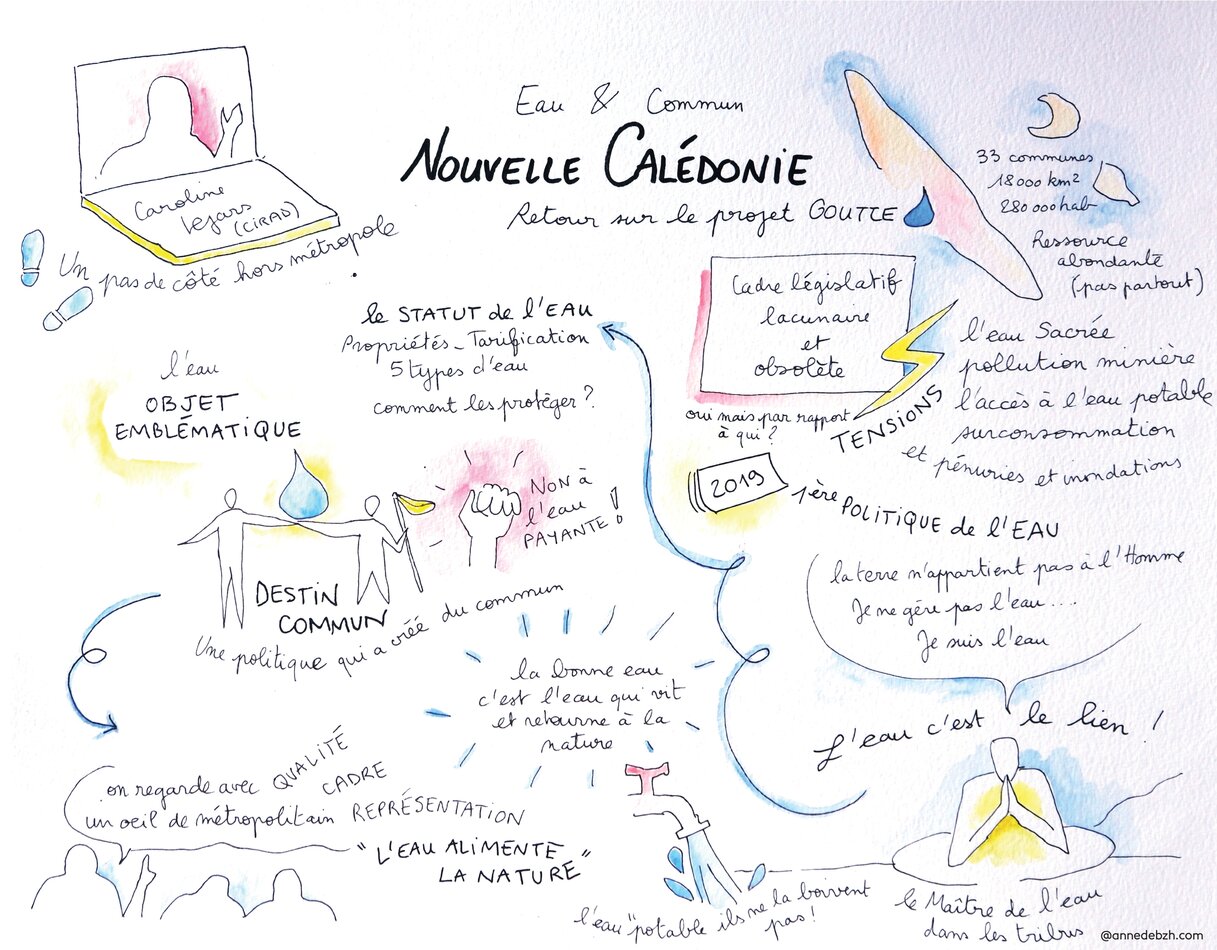 Eau & Commun
NOUVELLE CALÉDONIE
Retour sur le projet GOUTTE
Caroline
Lejars
(CIRAD)
Un pas de côté hors métropole
33 communes
18 000 km²
280 000 hab
Ressource
abondante
(pas partout)
Cadre législatif
lacunaire
et
obsolète
oui mais par rapport
à qui ?
TENSIONS
l'eau Sacrée
pollution minière
l'accès à l'eau potable
surconsommation
et pénuries et inondations
le STATUT de l'EAU
Propriétés - Tarification
5 types d'eau
comment les protéger ?
l'eau
OBJET
EMBLÉMATIQUE
NON à
l'eau
PAYANTE !
DESTIN
COMMUN
Une politique qui a créé du commun
2019
1ère POLITIQUE de l'EAU
la terre n'appartient pas à l'Homme
Je ne gère pas l'eau....
Je suis l'eau
L'eau c'est le lien !
la bonne eau
c'est l'eau qui vit
et retourne à la
nature
on regarde avec QUALITÉ
CADRE
un oeil de métropolitain REPRÉSENTATION
"L'EAU ALIMENTE
LA NATURE"
l'eau "potable ils ne la boivent
pas !
le Maître de l'eau
dans les tribus
@annedebzh.com